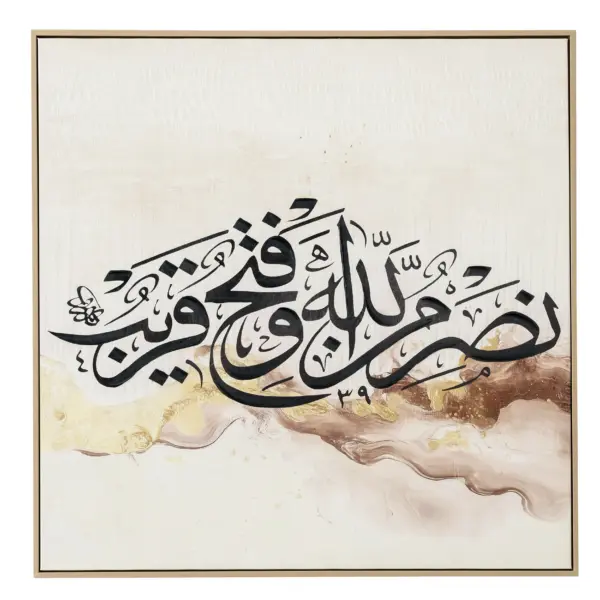 نصر من الله وفتح قريب
٣٩